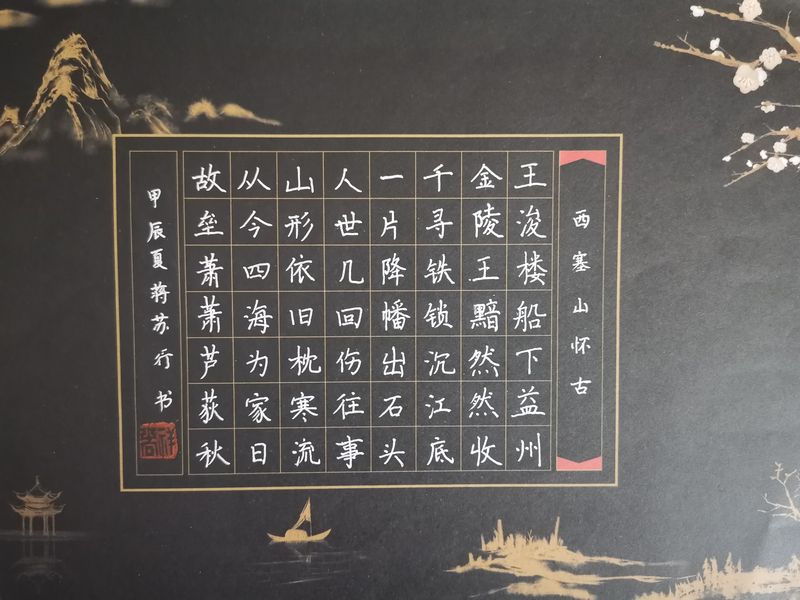 西塞山怀古
王浚楼船下益州
金陵王黯然然收
千寻铁锁沉江底
一片降幡出石头
人世几回伤往事
山形依旧枕寒流
从今四海为家日
故垒萧萧芦荻秋
甲辰夏蒋苏行书